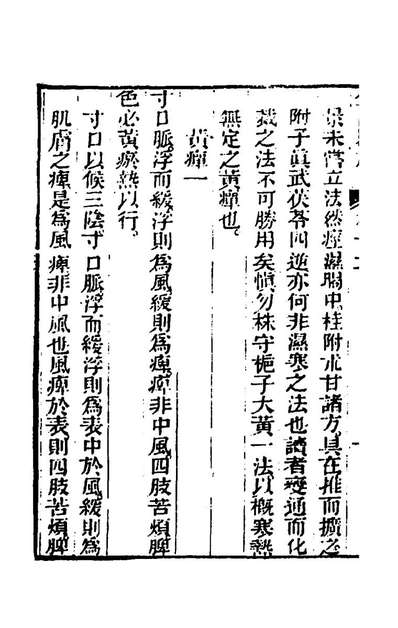 景未嘗立法然痙濕暍中桂附朮甘諸方具在推而擴之
附子眞武茯苓四逆亦何非濕寒之法也讀者變通而化
裁之法不可勝用矣愼勿株守梔子大黃一法以概寒熱
無定之黃癉也。
黃癉一
寸口脈浮而緩浮則為風緩則為痺痺非中風四肢苦煩脾
色必黃瘀熱以行。
寸口以候三陰寸口脈浮而緩浮則為表中於風緩則為
肌膚之痺是為風痺非中風也風痺於表則四肢苦煩脾